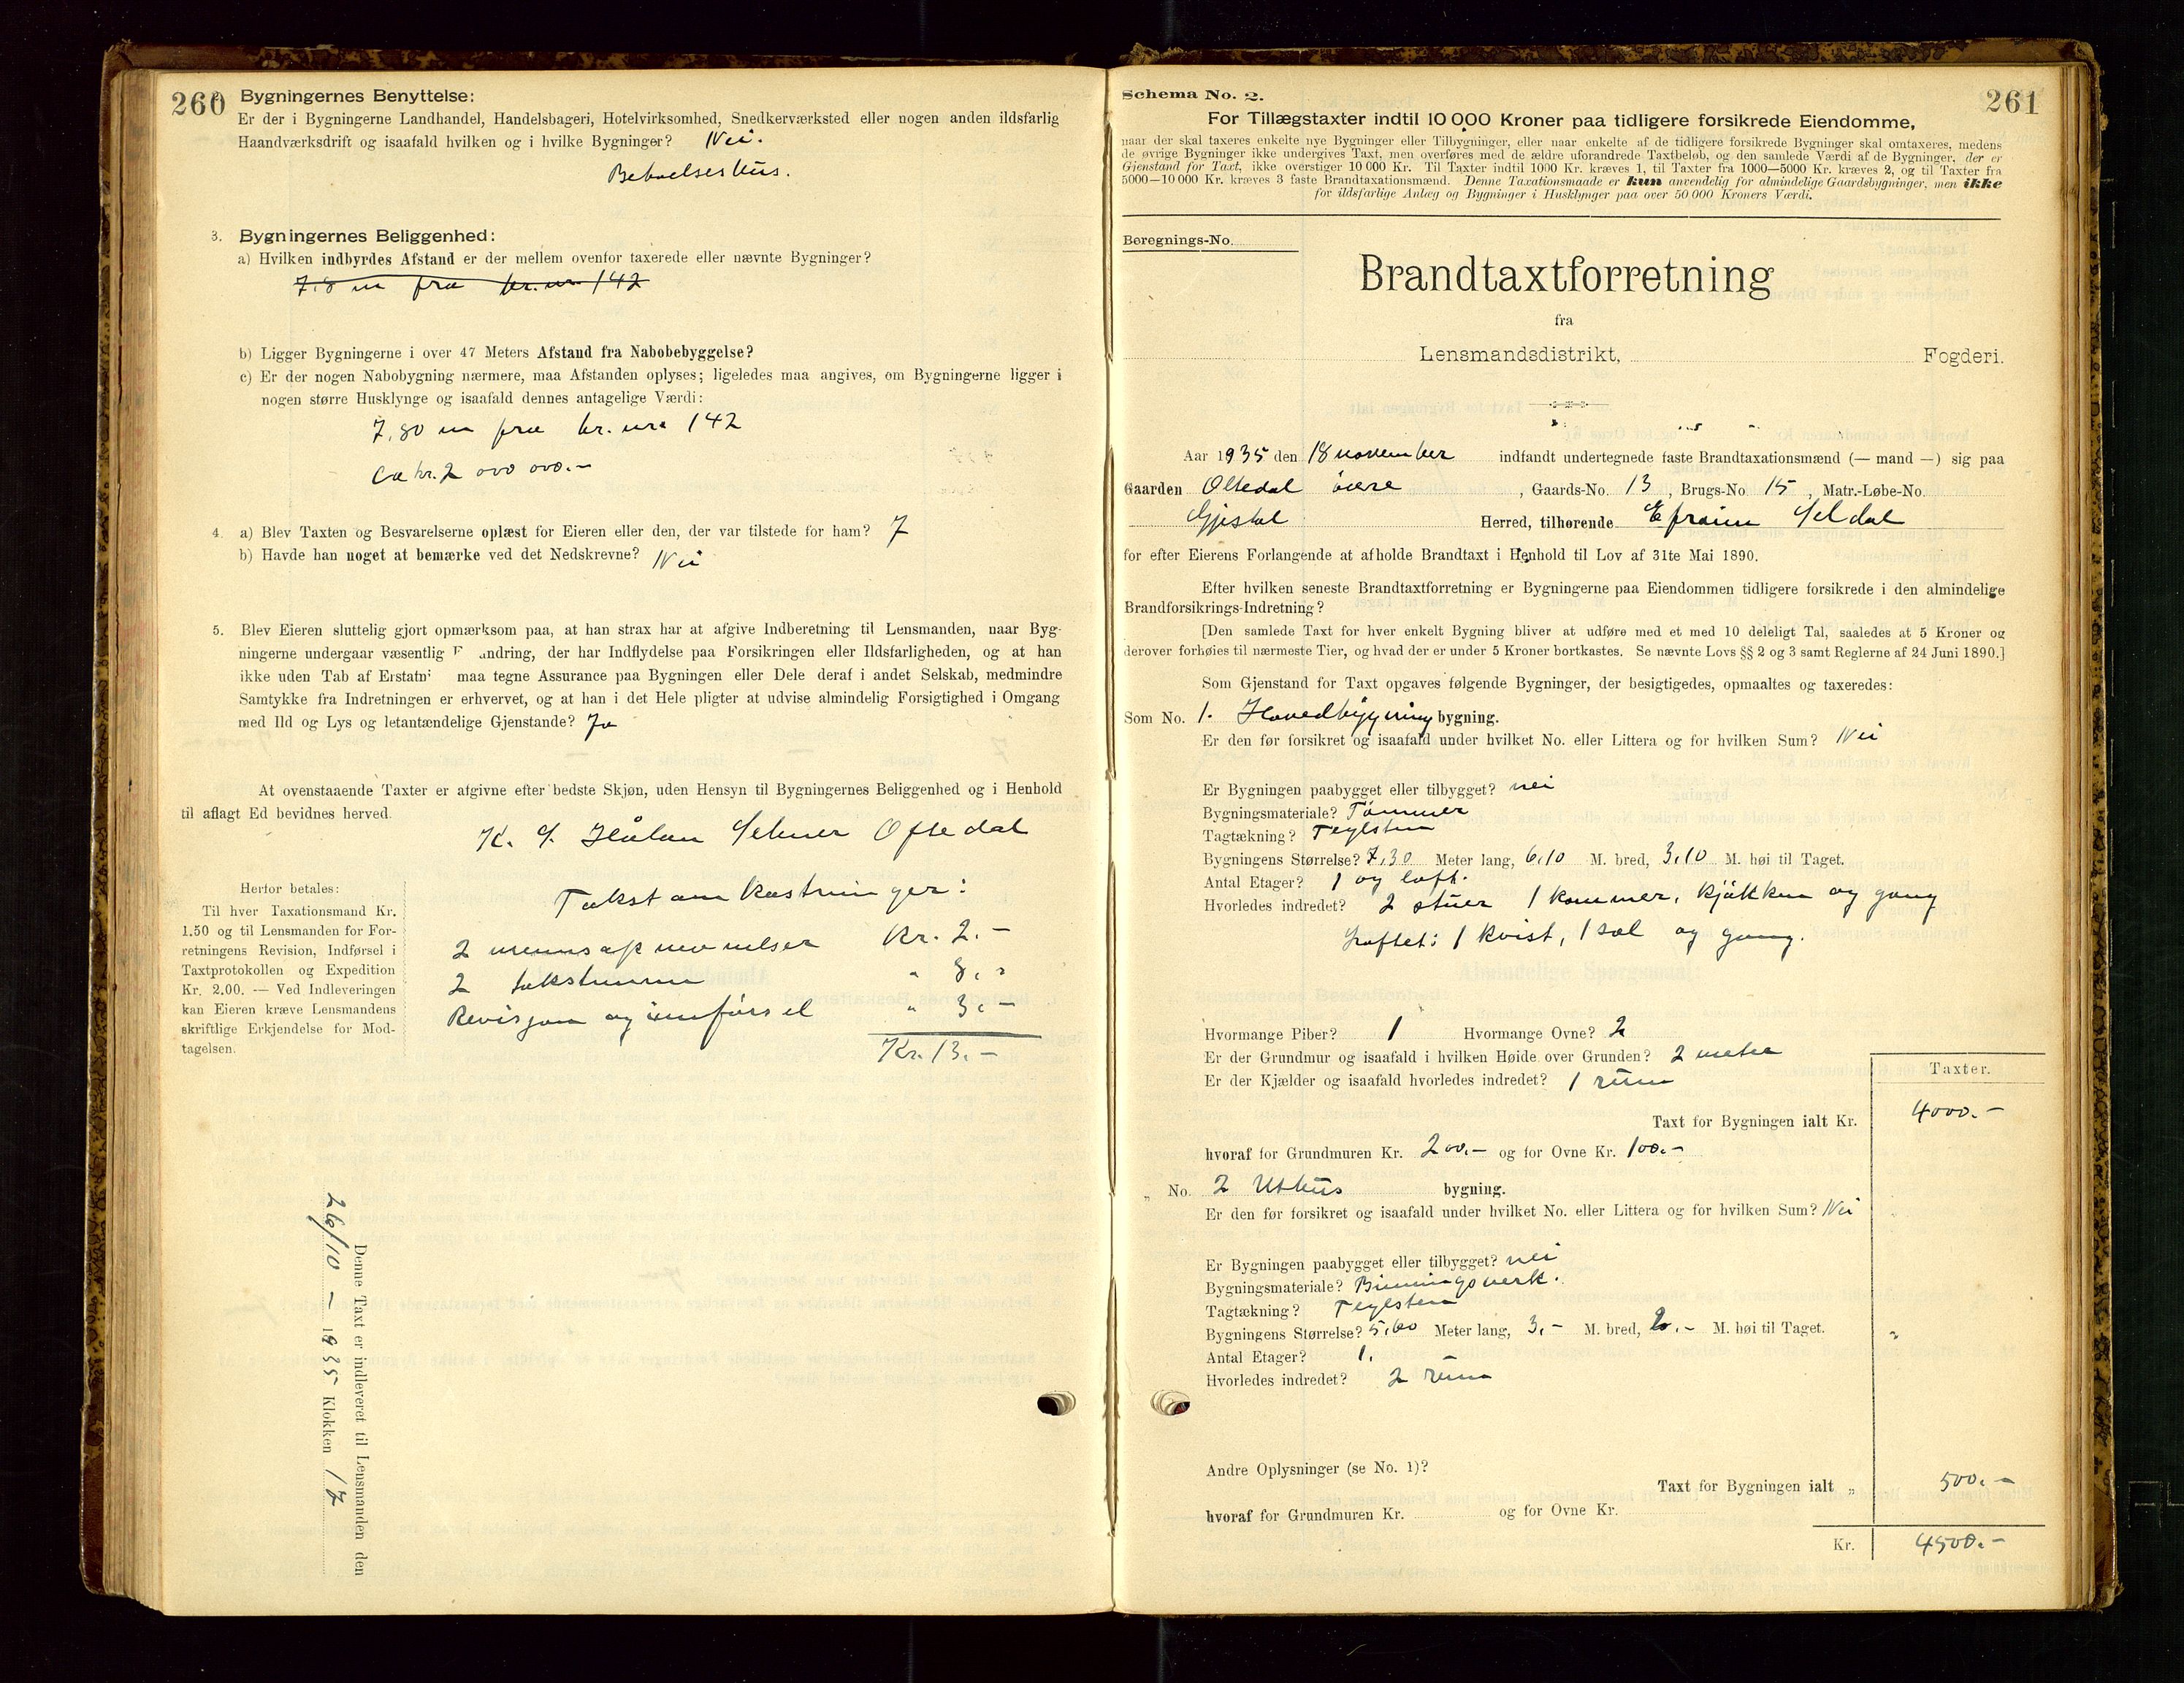 260
Bygningernes Benyttelse:
Er der i Bygningerne Landhandel, Handelsbageri, Hotelvirksomhed, Snedkerværksted eller nogen anden ildsfarlig
Haandværksdrift og isaafald hvilken og i hvilke Bygninger? Nei.
Beboelseshus.
3. Bygningernes Beliggenhed:
a) Hvilken indbyrdes Afstand er der mellem ovenfor taxerede eller nævnte Bygninger?
7.8 m fra br.nr. 142
b) Ligger Bygningerne i over 47 Meters Afstand fra Nabobebyggelse?
c) Er der nogen Nabobygning nærmere, maa Afstanden oplyses; ligeledes maa angives, om Bygningerne ligger i
nogen større Husklynge og isaafald dennes antagelige Værdi:
7,80 m fra br. nr. 142
Ca kr. 2 000 000.-
4. a) Blev Taxten og Besvarelserne oplæst for Eieren eller den, der var tilstede for ham? J
b) Havde han noget at bemærke ved det Nedskrevne? Nei
5. Blev Eieren sluttelig gjort opmærksom paa, at han strax har at afgive Indberetning til Lensmanden, naar Byg-
ningerne undergaar væsentlig F andring, der har Indflydelse paa Forsikringen eller Ildsfarligheden, og at han
ikke uden Tab af Erstatn maa tegne Assurance paa Bygningen eller Dele deraf i andet Selskab, medmindre
Samtykke fra Indretningen er erhvervet, og at han i det Hele pligter at udvise almindelig Forsigtighed i Omgang
med Ild og Lys og letantændelige Gjenstande? Ja
At ovenstaaende Taxter er afgivne efter bedste Skjøn, uden Hensyn til Bygningernes Beliggenhed og i Henhold
til aflagt Ed bevidnes herved.
K. S. Hålan Selmer Oftedal
Herfor betales:
Til hver Taxationsmand Kr.
1.50 og til Lensmanden for For-
retningens Revision, Indførsel i
Taxtprotokollen og Expedition
Kr. 2.00. — Ved Indleveringen
kan Eieren kræve Lensmandens
skriftlige Erkjendelse for Mod-
tagelsen.
Takstomkostninger:
2 mennsopnevnelser Kr. 2.-
2 takstmenn " 8,-
Revisjon og innførsel " 3,-
Kr. 13.-
Denne Taxt er indleveret til Lensmanden den
26/10 - 1935 Klokken 17
261
Schema No. 2.
For Tillægstaxter indtil 10 000 Kroner paa tidligere forsikrede Eiendomme,
naar der skal taxeres enkelte nye Bygninger eller Tilbygninger, eller naar enkelte af de tidligere forsikrede Bygninger skal omtaxeres, medens
de øvrige Bygninger ikke undergives Taxt, men overføres med de ældre uforandrede Taxtbeløb, og den samlede Værdi af de Bygninger, der er
Gjenstand for Taxt, ikke overstiger 10 000 Kr. Til Taxter indtil 1000 Kr. kræves 1, til Taxter fra 1000—5000 Kr. kræves 2, og til Taxter fra
5000—10 000 Kr. kræves 3 faste Brandtaxationsmænd. Denne Taxationsmaade er kun anvendelig for almindelige Gaardsbygninger, men ikke
for ildsfarlige Anlæg og Bygninger i Husklynger paa over 50 000 Kroners Værdi.
Beregnings-No.
Brandtaxtforretning
fra
Lensmandsdistrikt, Fogderi.
Aar 1935 den 18 november indfandt undertegnede faste Brandtaxationsmænd (— mand —) sig paa
Gaarden Oltedal øvre, Gaards-No. 13, Brugs-No. 15, Matr.-Løbe-No.
Gjestal Herred, tilhørende Efraim Seldal
for efter Eierens Forlangende at afholde Brandtaxt i Henhold til Lov af 31te Mai 1890.
Efter hvilken seneste Brandtaxtforretning er Bygningerne paa Eiendommen tidligere forsikrede i den almindelige
Brandforsikrings-Indretning?
[Den samlede Taxt for hver enkelt Bygning bliver at udføre med et med 10 deleligt Tal, saaledes at 5 Kroner og
derover forhøies til nærmeste Tier, og hvad der er under 5 Kroner bortkastes. Se nævnte Lovs §§ 2 og 3 samt Reglerne af 24 Juni 1890.]
Som Gjenstand for Taxt opgaves følgende Bygninger, der besigtigedes, opmaaltes og taxeredes:
Som No. 1. Hovedbygning bygning.
Er den før forsikret og isaafald under hvilket No. eller Littera og for hvilken Sum? Nei
Er Bygningen paabygget eller tilbygget? nei
Bygningsmateriale? Tømmer
Tagtækning? Teglsten
Bygningens Størrelse? 7,30 Meter lang, 6,10 M. bred, 3,10 M. høi til Taget.
Antal Etager? 1 og loft.
Hvorledes indredet? 2 stuer 1 kammer, kjøkken og gang
Loftet: 1 kvist, 1 sal og gang.
Hvormange Piber? 1 Hvormange Ovne? 2
Er der Grundmur og isaafald i hvilken Høide over Grunden? 2 meter
Er der Kjælder og isaafald hvorledes indredet? 1 rum
Taxter.
Taxt for Bygningen ialt Kr. 4000.-
hvoraf for Grundmuren Kr. 200.- og for Ovne Kr. 100.-
" No. 2 Uthus bygning.
Er den før forsikret og isaafald under hvilket No. eller Littera og for hvilken Sum? Nei
Er Bygningen paabygget eller tilbygget? nei
Bygningsmateriale? Binningsverk.
Tagtækning? Teglsten
Bygningens Størrelse? 5,60 Meter lang, 3,- M. bred, 2.- M. høi til Taget.
Antal Etager? 1.
Hvorledes indredet? 2 rum
Andre Oplysninger (se No. 1)?
Taxt for Bygningen ialt " 500.-
hvoraf for Grundmuren Kr. og for Ovne Kr.
Kr. 4500.-